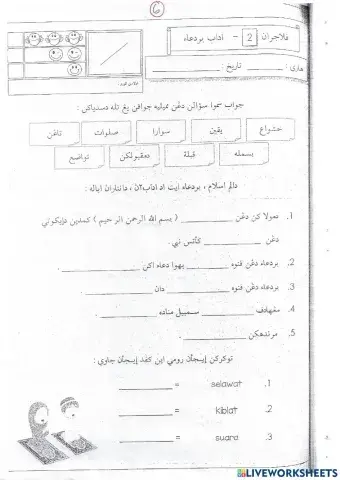 6
ڤلاجرن 2 - اداب بردعاء
هاري : تاريخ :
جواب سموا سوءالن دغن ميليه جوابن يڠ تله دسدياكن :
خشواع يقين سوارا صلوات تاڠن
بسمله قبلة دمقبولكن تواضع
دالم اسلام ، بردعاء ايت اد
1. دمولا كن دڠن ( بسم الله الرحمن الرحيم ) كمدين
دڠن كأتس نبي .
2. بردعاء دڠن ڤنوه بهوا دعاء اكن .
3. بردعاء دڠن ڤنوه دان .
4. مڠهادڤ
5. مرندهكن .
توكركن ايجاءن رومي اين كڤد ايجاءن جاوي :
1. selawat =
2. kiblat =
3. suara =
LIVEWORKSHEETS